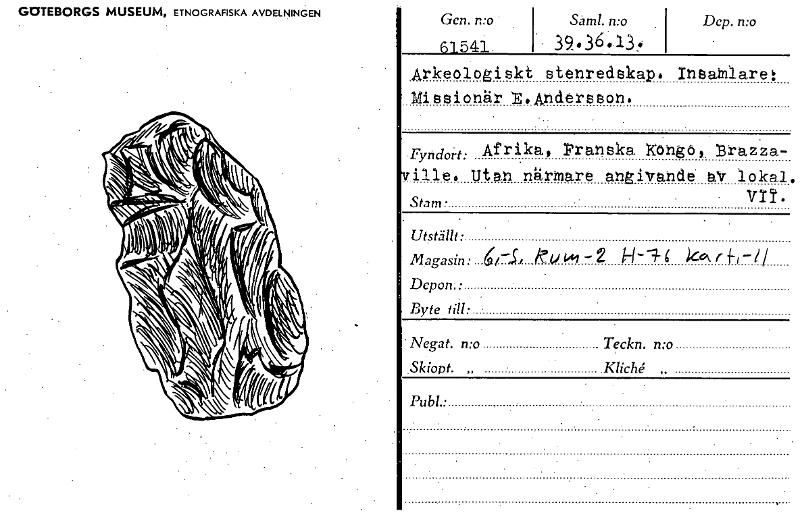 GÖTEBORGS MUSEUM, ETNOGRAFISKA AVDELNINGEN
Gen. n:o Saml. n:o Dep. n:o
61541 39.36.13.
Arkeologiskt stenredskap. Insamlare:
Missionär E.Andersson.
Fyndort: Afrika, Franska Kongo, Brazza-
ville. Utan närmare angivande av lokal.
Stam: VII.
Utställt:
Magasin: 6,-S. Rum-2 H-76 kart.-11
Depon.:
Byte till:
Negat. n:o Teckn. n:o
Skiopt. „ Kliché „
Publ.: